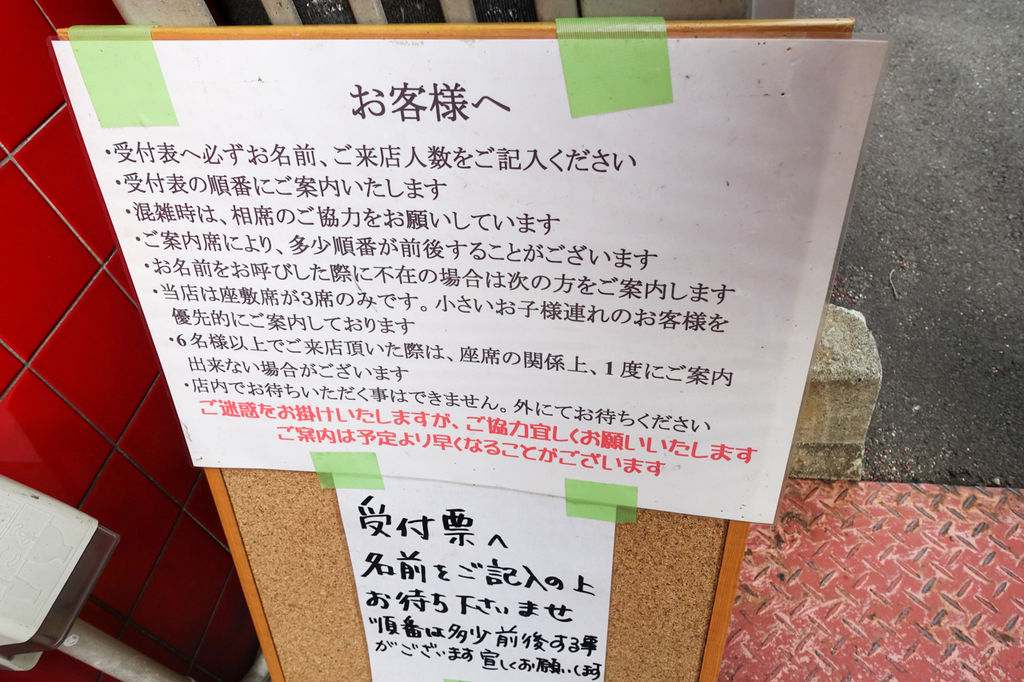 お客様へ
・受付表へ必ずお名前、ご来店人数をご記入ください
・受付表の順番にご案内いたします
・混雑時は、相席のご協力をお願いしています
・ご案内席により、多少順番が前後することがございます
・お名前をお呼びした際に不在の場合は次の方をご案内します
・当店は座敷席が3席のみです。小さいお子様連れのお客様を
優先的にご案内しております
・6名様以上でご来店頂いた際は、座席の関係上、1度にご案内
出来ない場合がございます
・店内でお待ちいただく事はできません。外にてお待ちください
ご迷惑をお掛けいたしますが、ご協力宜しくお願いいたします
ご案内は予定より早くなることがございます
受付票へ
名前をご記入の上
お待ち下さいませ
順番は多少前後する事
がございます宜しくお願いします